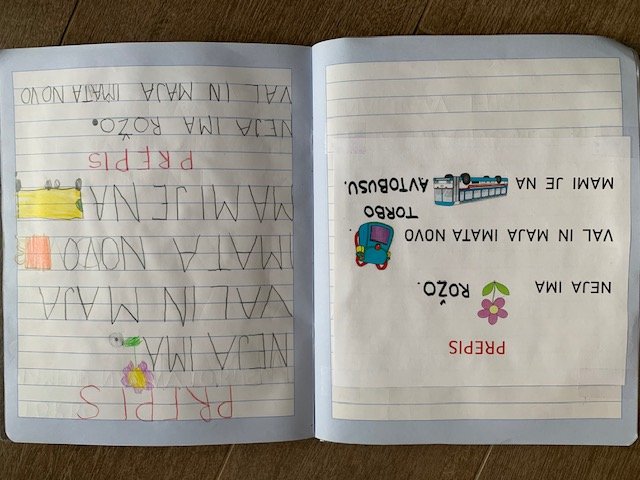 PREPIS
NEJA IMA ROŽO.
VAL IN MAJA IMATA NOVO
TORBO
MAMI JE NA AVTOBUSU.
PREPIS
NEJA IMA
VAL IN MAJA
IMATA NOVO
MAMI JE NA
PREPIS
NEJA IMA ROŽO.
VAL IN MAJA IMATA NOVO